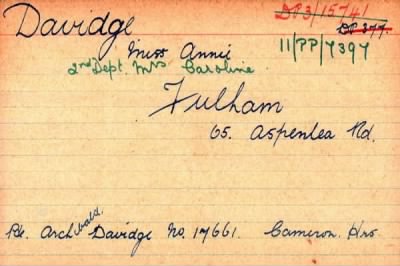 Davidge
DP3/15741
DP 377
Miss Annie
11/PP/7397
2nd Dept. Mrs Caroline
Fulham
65. Aspenlea Rd.
Pte. Archibald Davidge No. 17661. Cameron. Hrs.